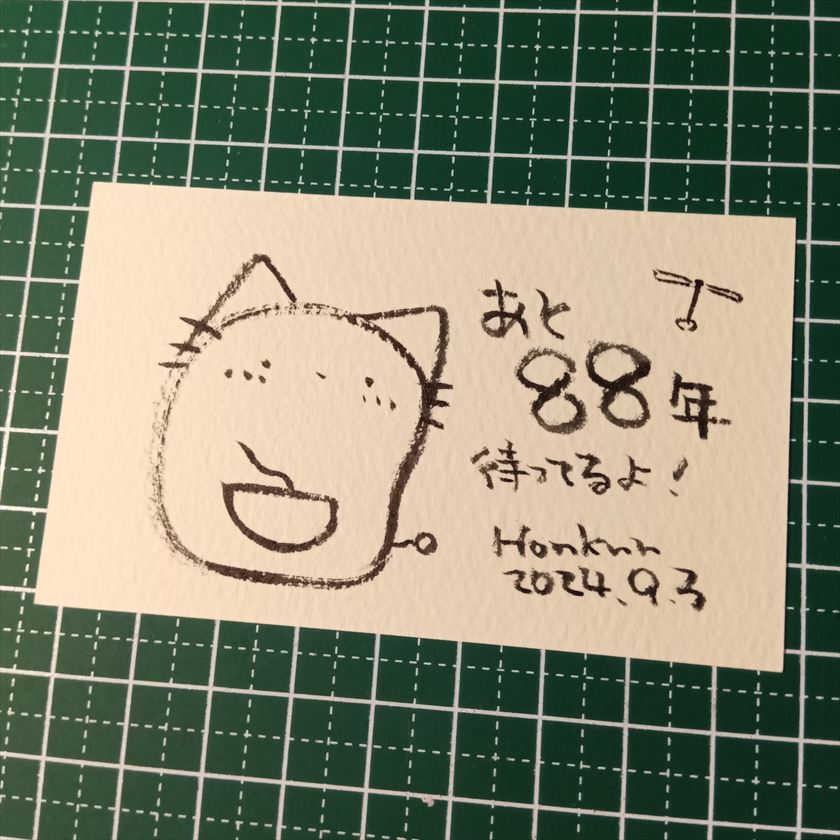 あと
88年
待ってるよ!
Honkun
2024.9.3